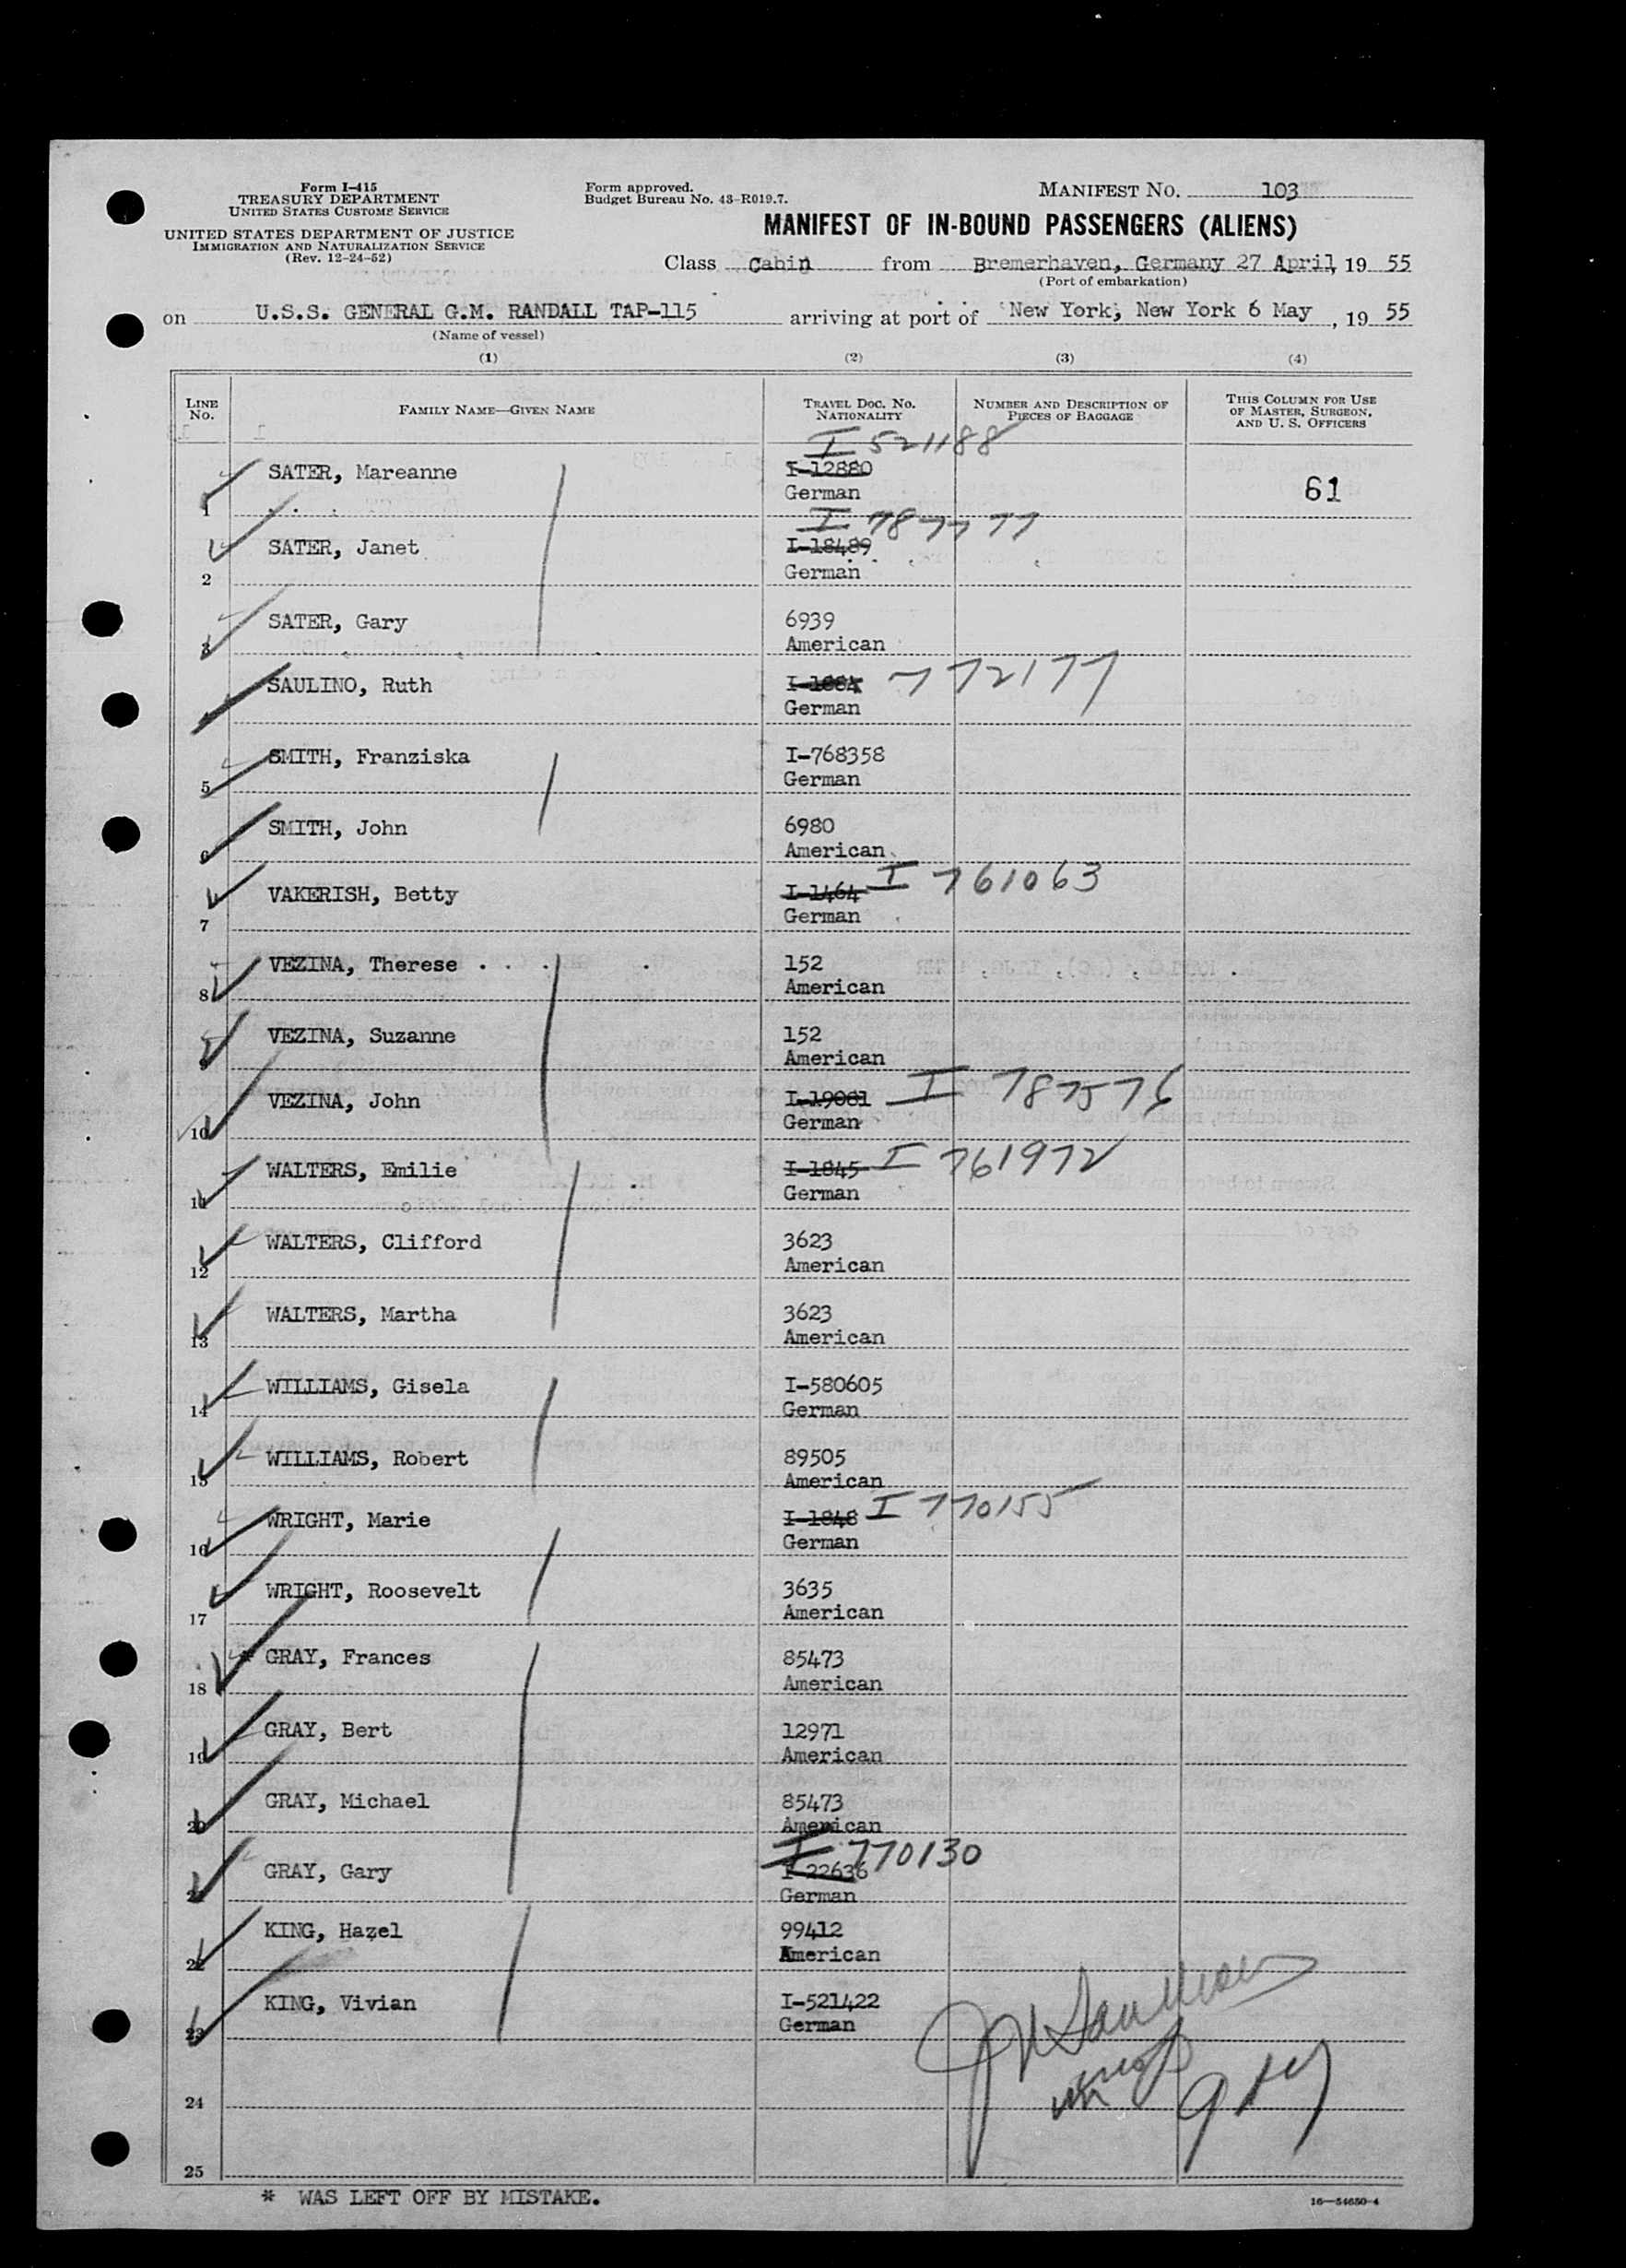 Form I-415
TREASURY DEPARTMENT
UNITED STATES CUSTOMS SERVICE
UNITED STATES DEPARTMENT OF JUSTICE
IMMIGRATION AND NATURALIZATION SERVICE
(Rev. 12-24-52)
Form approved.
Budget Bureau No. 43-R019.7.
MANIFEST NO. 103
MANIFEST OF IN-BOUND PASSENGERS (ALIENS)
Class Cabin from Bremerhaven, Germany 27 April, 19 55
(Port of embarkation)
on U.S.S. GENERAL G.M. RANDALL TAP-115 arriving at port of New York, New York 6 May, 19 55
(Name of vessel)
(1) (2) (3) (4)
LINE NO. FAMILY NAME—GIVEN NAME TRAVEL DOC. NO. NATIONALITY NUMBER AND DESCRIPTION OF PIECES OF BAGGAGE THIS COLUMN FOR USE OF MASTER, SURGEON, AND U. S. OFFICERS
I 521188
SATER, Mareanne I-12880
1 German 61
I 787777
SATER, Janet I-18489
2 German
SATER, Gary 6939
3 American
SAULINO, Ruth I-1884 772177
4 German
SMITH, Franziska I-768358
5 German
SMITH, John 6980
6 American
VAKERISH, Betty I-1464 I 761063
7 German
VEZINA, Therese 152
8 American
VEZINA, Suzanne 152
9 American
VEZINA, John I-19081 I 787576
10 German
WALTERS, Emilie I-1845 I 761972
11 German
WALTERS, Clifford 3623
12 American
WALTERS, Martha 3623
13 American
WILLIAMS, Gisela I-580605
14 German
WILLIAMS, Robert 89505
15 American
WRIGHT, Marie I-1848 I 770155
16 German
WRIGHT, Roosevelt 3635
17 American
* GRAY, Frances 85473
18 American
GRAY, Bert 12971
19 American
GRAY, Michael 85473
20 American
I 770130
GRAY, Gary I-22636
21 German
KING, Hazel 99412
22 American
KING, Vivian I-521422
23 German
24
25
* WAS LEFT OFF BY MISTAKE.
16—54650-4